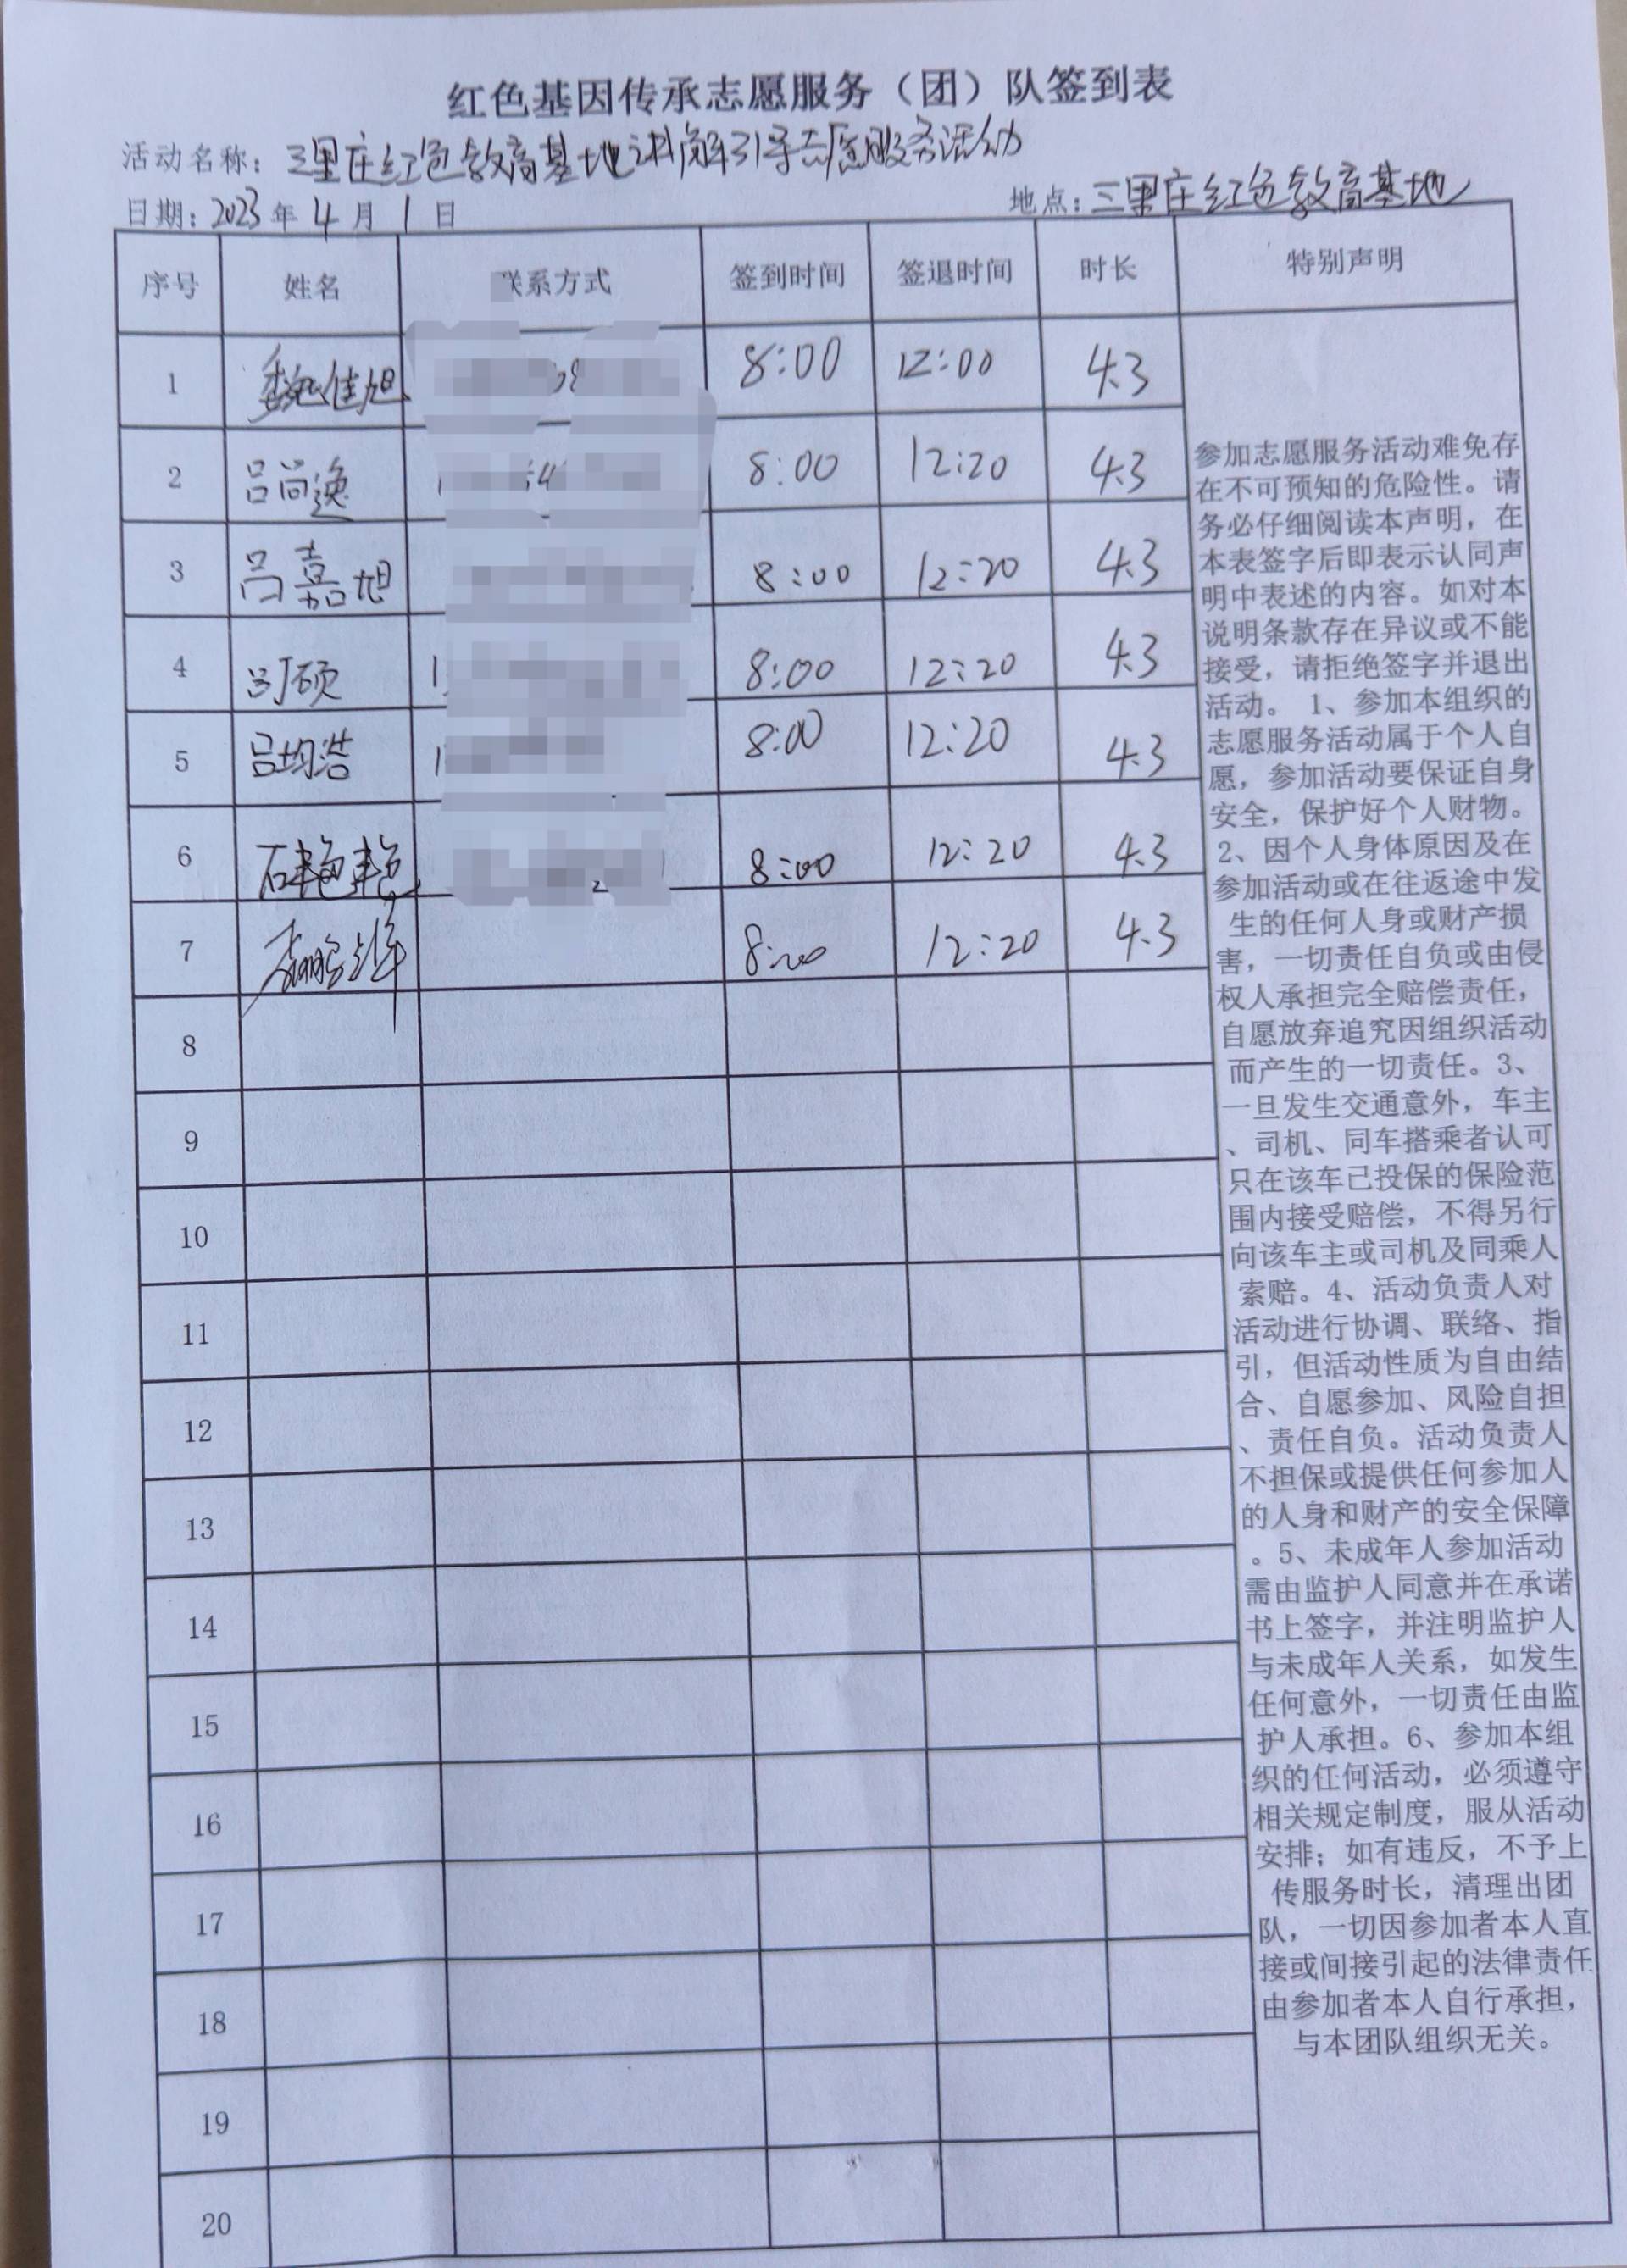 红色基因传承志愿服务（团）队签到表
活动名称：三里庄红色教育基地讲解引导志愿服务活动
日期：2023年4月1日 地点：三里庄红色教育基地
序号 姓名 联系方式 签到时间 签退时间 时长 特别声明
1 魏佳旭 8:00 12:00 4.3
2 吕尚逸 8:00 12:20 4.3
3 吕嘉旭 8:00 12:20 4.3
4 硕 8:00 12:20 4.3
5 吕均浩 8:00 12:20 4.3
6 石艳艳 8:00 12:20 4.3
7 8:00 12:20 4.3
8
9
10
11
12
13
14
15
16
17
18
19
20
参加志愿服务活动难免存
在不可预知的危险性。请
务必仔细阅读本声明，在
本表签字后即表示认同声
明中表述的内容。如对本
说明条款存在异议或不能
接受，请拒绝签字并退出
活动。 1、参加本组织的
志愿服务活动属于个人自
愿，参加活动要保证自身
安全，保护好个人财物。
2、因个人身体原因及在
参加活动或在往返途中发
生的任何人身或财产损
害，一切责任自负或由侵
权人承担完全赔偿责任，
自愿放弃追究因组织活动
而产生的一切责任。3、
一旦发生交通意外，车主
、司机、同车搭乘者认可
只在该车已投保的保险范
围内接受赔偿，不得另行
向该车主或司机及同乘人
索赔。4、活动负责人对
活动进行协调、联络、指
引，但活动性质为自由结
合、自愿参加、风险自担
、责任自负。活动负责人
不担保或提供任何参加人
的人身和财产的安全保障
。5、未成年人参加活动
需由监护人同意并在承诺
书上签字，并注明监护人
与未成年人关系，如发生
任何意外，一切责任由监
护人承担。6、参加本组
织的任何活动，必须遵守
相关规定制度，服从活动
安排；如有违反，不予上
传服务时长，清理出团
队，一切因参加者本人直
接或间接引起的法律责任
由参加者本人自行承担，
与本团队组织无关。